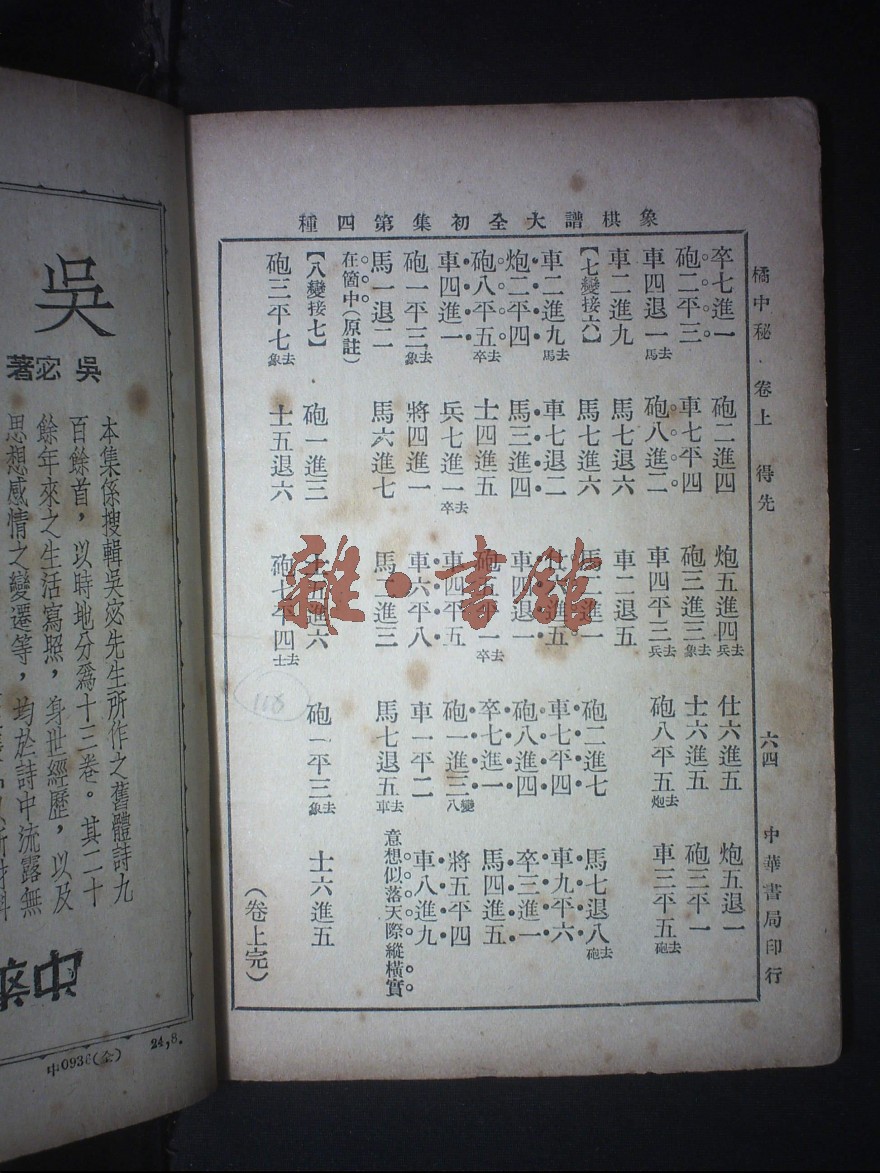 象棋譜大全初集第四種
橘中秘 卷上 得先 六四 中華書局印行
卒七進一 砲二進四 炮五進四去兵 仕六進五 炮五退一
砲二平三 車七平四 砲三進三去象 士六進五 砲三平一
車四退一去馬 砲八進二 車四平三去兵 砲八平五去炮 車三平五去砲
車二進九 馬七退六 車二退五
【七變接六】 馬七進六 馬二進一 砲二進七 馬七退八去砲
車二進九去馬 車七退二 仕 進五 車七平四 車九平六
炮二平四 馬三進四 車四退一 砲八進四 卒三進一
砲八平五去卒 士四進五 砲五平一去卒 卒七進一 馬四進五
車四進一 兵七進一去卒 車四平五 砲一進三變八 將五平四
砲一平三去象 將四進一 車六平八 車一平二 車八進九
馬一退二 馬六進七 馬二進三 馬七退五去車 意想似落天際縱橫實
在箇中(原註)
【八變接七】 砲一進三 士五進六去士 砲一平三去象 士六進五
砲三平七去象 士五退六 砲七平四去士
(卷上完)
118
雜·書館
吳
吳宓著
本集係搜輯吳宓先生所作之舊體詩九
百餘首，以時地分爲十三卷。其二十
餘年來之生活寫照，身世經歷，以及
思想感情之變遷等，均於詩中流露無
中0936(全) 24,8.